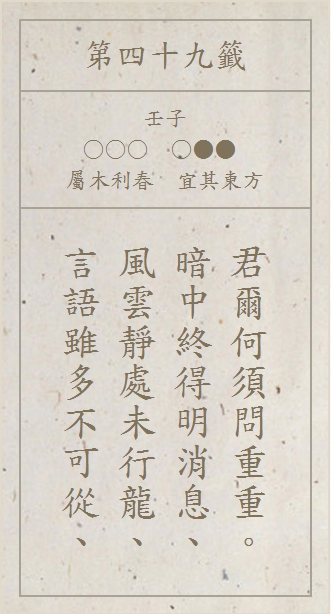 第四十九籤
壬子
○○○ ○●●
屬木利春 宜其東方
言語雖多不可從、
風雲靜處未行龍、
暗中終得明消息、
君爾何須問重重。